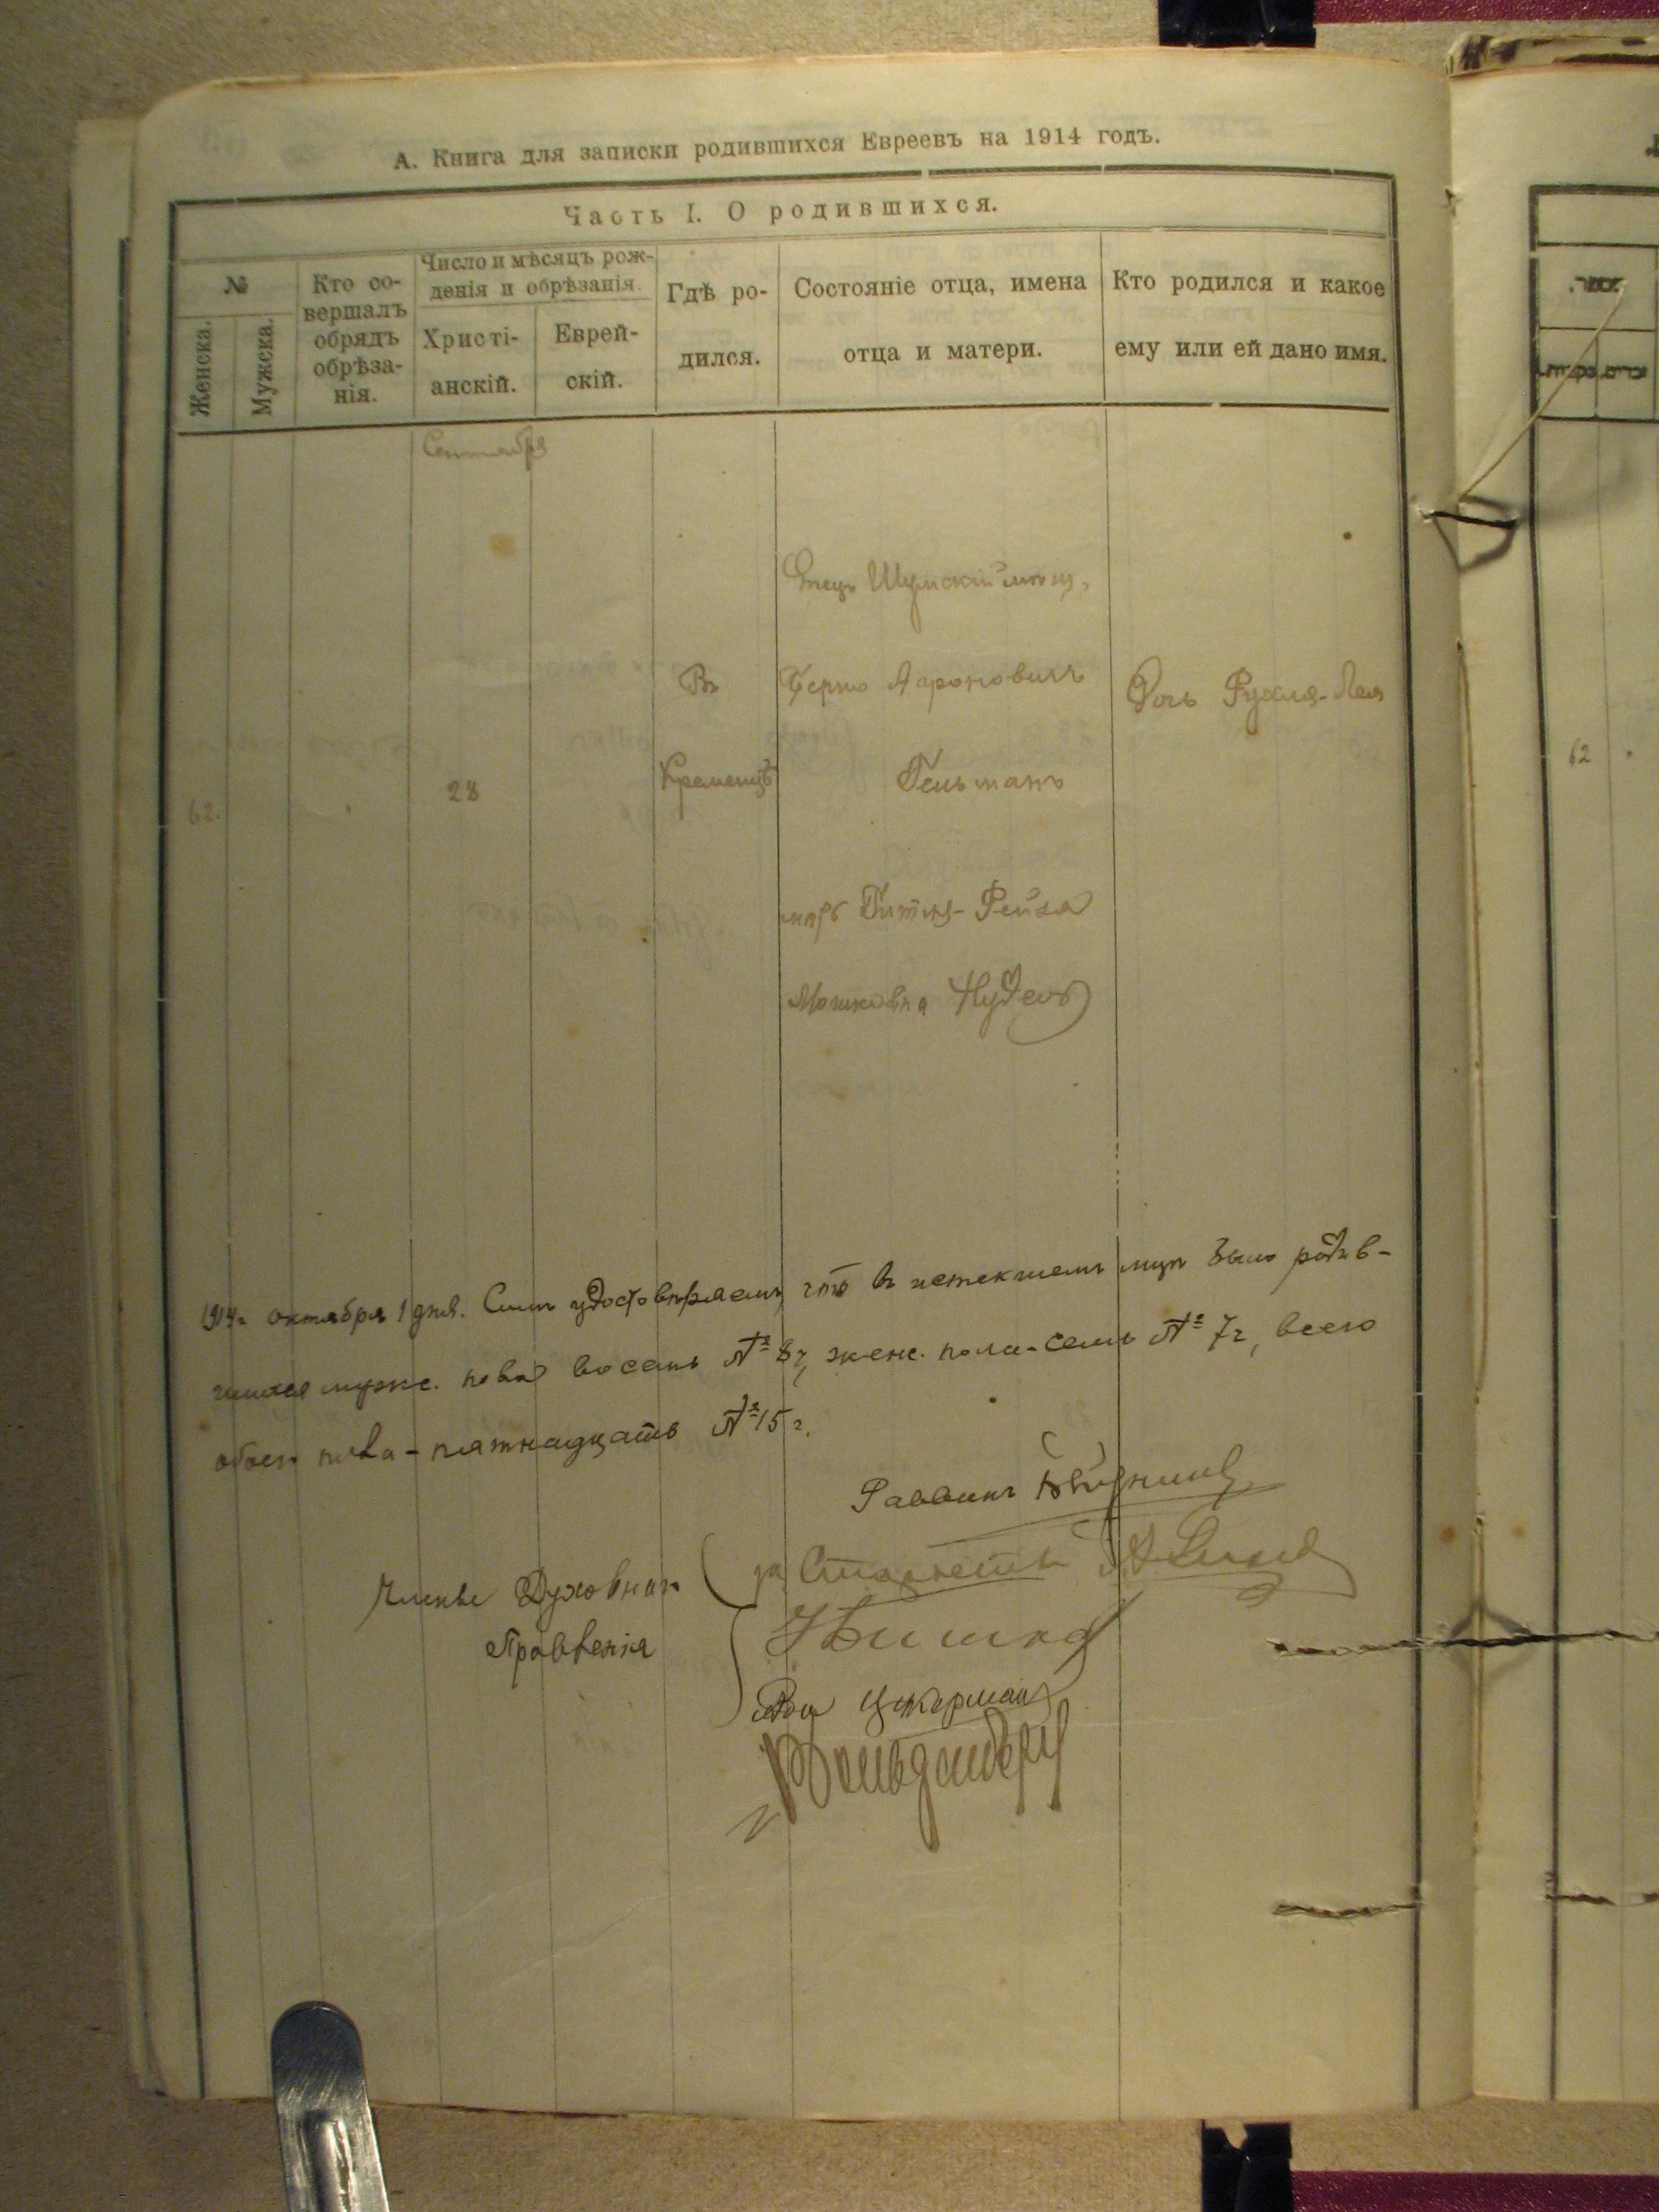 А. Книга для записки родившихся Евреевъ на 1914 годъ.
Часть I. О родившихся.
№
Женска.
Мужска.
Кто со-
вершалъ
обрядъ
обрѣза-
нія.
Число и мѣсяцъ рож-
денія и обрѣзанія.
Христі-
анскій.
Еврей-
скій.
Гдѣ ро-
дился.
Состояніе отца, имена
отца и матери.
Кто родился и какое
ему или ей дано имя.
Сентября
62.
28
Въ
Кременцѣ
Отецъ Шумскій мѣщ.
Берко Ароновичъ
Гельманъ
мать Гитля-Рейзя
Мошковна Нудель
Дочь Рухля-Лея
1914 г. октября 1 дня. Симъ удостовѣряемъ, что въ истекшемъ мцѣ было родив-
шихся мужс. пола восемь № 8 г, женс. пола-семь № 7 г, всего
обоего пола-пятнадцать № 15 г.
Раввинъ
Члены Духовнаго
Правленія
за Старосты
Цукерманъ
Гольденбергъ
62